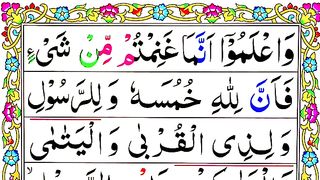 وَاعْلَمُوْۤا اَنَّمَا غَنِمْتُمْ مِّنْ شَیْءٍ
فَاَنَّ لِلّٰهِ خُمُسَهٗ وَ لِلرَّسُوْلِ
وَ لِذِی الْقُرْبٰی وَ الْیَتٰمٰی